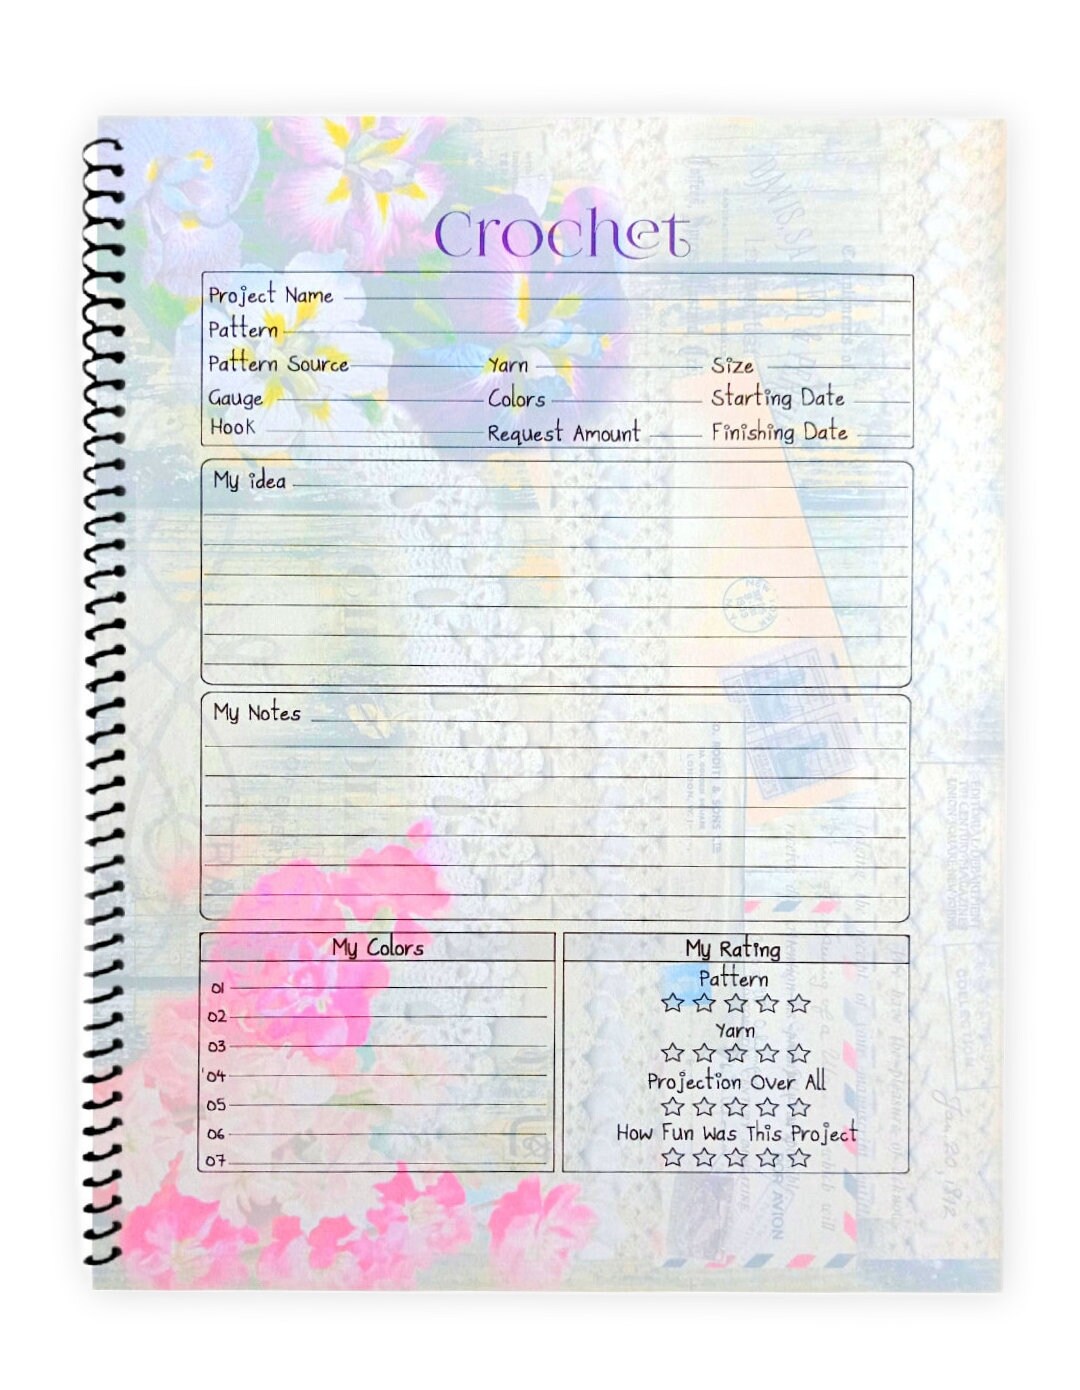 Crochet
Project Name
Pattern
Pattern Source Yarn Size
Gauge Colors Starting Date
Hook Request Amount Finishing Date
My idea
My Notes
My Colors
01
02
03
04
05
06
07
My Rating
Pattern
Yarn
Projection Over All
How Fun Was This Project
AVION